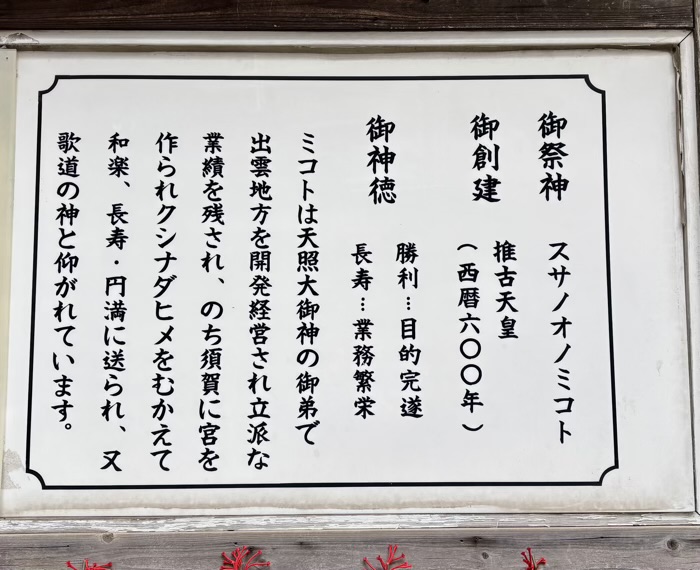 御祭神 スサノオノミコト
御創建 推古天皇
(西暦六〇〇年)
御神徳 勝利…目的完遂
長寿…業務繁栄
ミコトは天照大御神の御弟で
出雲地方を開発経営され立派な
業績を残され、のち須賀に宮を
作られクシナダヒメをむかえて
和楽、長寿・円満に送られ、又
歌道の神と仰がれています。